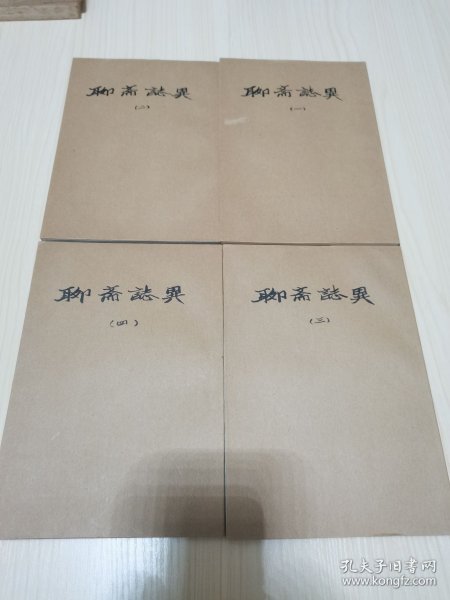 聊斋誌異
(二)
聊斋誌異
(一)
聊斋誌異
(四)
聊斋誌異
(三)
孔夫子旧书网
www.kongfz.com